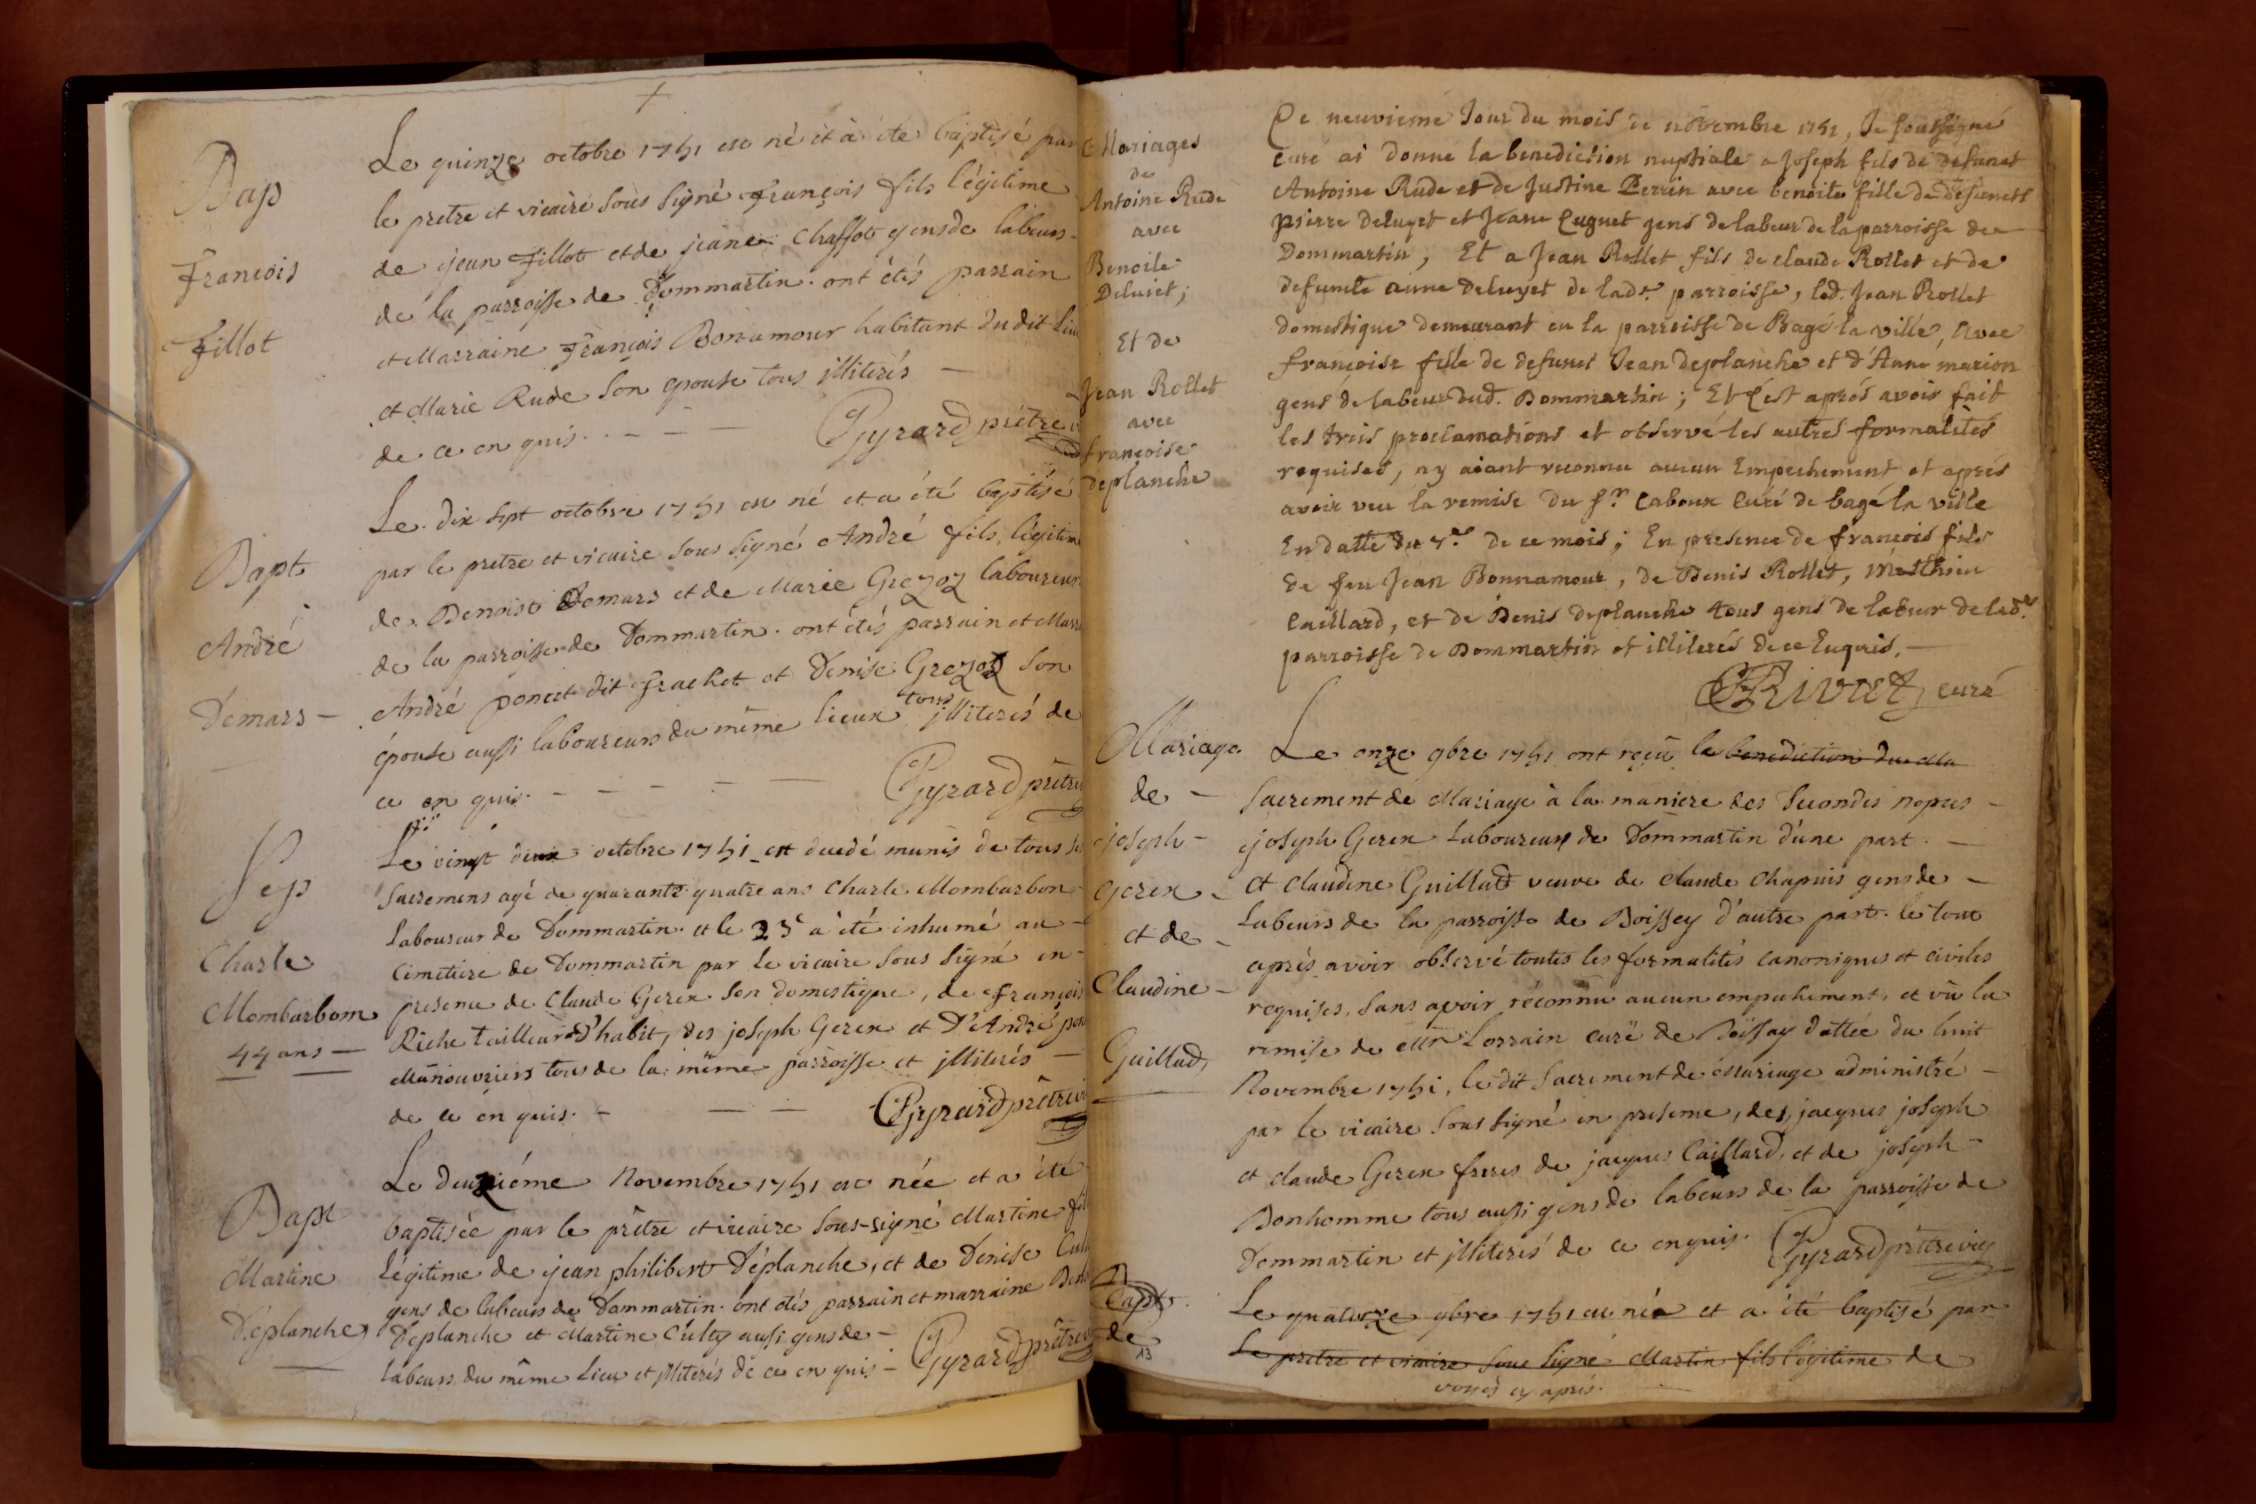 Bap
François
Fillot
Le quinze octobre 1751 est né et à été baptisé par
le pretre et vicaire sous signé François fils légitime
de jean Fillot et de jeane Chaffot gens de labeurs
de la parroisse de Dommartin. ont étés parrain
et Marraine François Bonamour habitant du dit lieu
et Marie Rude son epouse tous illiterés
de ce en quis.
Gyrard prêtre
Bapt
André
Démars
Le dix sept octobre 1751 est né et a été baptisé
par le pretre et vicaire sous signé André fils légitime
de Benoist Demars et de Marie Grezoz laboureurs
de la parroisse de Dommartin. ont étés parrain et
André poncet dit frachet et Denise Grezoz son
épouse aussi laboureurs du même lieux tous illiterés de
ce en quis.
Gyrard prêtre
Sep
Charle
Mombarbom
44 ans
Le vingt deux octobre 1751 est decedé munis de tous
sacremens agé de quarante quatre ans Charle Mombarbon
laboureur de Dommartin et le 23 a été inhumé au
cimetiere de Dommartin par le vicaire sous signé en
presence de Claude Gerex son domestique, de François
Riche tailleur d'habit, des joseph Gerex et D'André
Manouvriers tous de la même parroisse et illiterés
de ce en quis.
Gyrard prêtre
Bapt
Martine
Déplanche
Le deuxiéme Novembre 1751 est née et a été
baptisée par le prêtre et vicaire sous-signé Martine
légitime de jean philibert Déplanche, et de Denise
gens de labeurs de Dommartin. ont étés parrain et marraine
Deplanche et Martine Culty aussi gens de
labeurs du même lieu et illiterés de ce en quis
Gyrard prêtre
Mariages
de
Antoine Rude
avec
Benoite
Deluiet;
Et de
Jean Rollet
avec
françoise
deplanche
Ce neuvieme Jour du mois de novembre 1751, Je soussigné
curé ai donné la benediction nuptiale a Joseph fils de defunct
Antoine Rude et de Justine Perrin avec benoite fille de defuncts
pierre deluyet et Jeane Cuguet gens de labeur de la parroisse de
Dommartin, Et a Jean Rollet fils de claude Rollet et de
defuncte anne deluyet de lade. parroisse, led. Jean Rollet
domestique demeurant en la parroisse de Bagé la ville, avec
françoise fille de defunct Jean deplanche et d'Anne marion
gens de labeur dud. Dommartin; Et C'est aprés avoir fait
les trois proclamations et observé les autres formalités
requises, n'y aiant reconnu aucun Empechement et aprés
avoir veu la remise du Sr. Caboux Curé de bagé la ville
En datte du 7e de ce mois; En presence de françois fils
de feu Jean Bonnamour, de Denis Rollet, Mathieu
Caillard, et de Denis deplanche tous gens de labeur de lade.
parroisse de Dommartin et illiterés de ce Enquis.
Rivuet curé
Mariage
de
joseph
Gerex
et de
Claudine
Guillad
Le onze 9bre 1751 ont reçu la benediction du Ma
Sacrement de Mariage à la maniere des secondes nopces
joseph Gerex Laboureur de Dommartin d'une part.
et Claudine Guillad veuve de Claude Chapuis gens de
Labeurs de la parroisse de Boissey d'autre part. le tout
aprés avoir observé toutes les formalités canoniques et civiles
requises, sans avoir réconnu aucun empechement, et vû la
remise de Mr Lorrain curé de Boissay dattée du huit
Novembre 1751, le dit sacrement de Mariage administré
par le vicaire sous signé en presence, des jacques joseph
et Claude Gerex freres de jacques Caillard, et de joseph
Bonhomme tous aussi gens de labeurs de la parroisse de
Dommartin et illiterés de ce enquis.
Gyrard prêtre vic
Bapt
de
13
Le quatorze 9bre 1751 est née et a été baptisé par
Le pretre et vicaire sous signé Martin fils légitime de
voiies cy aprés.